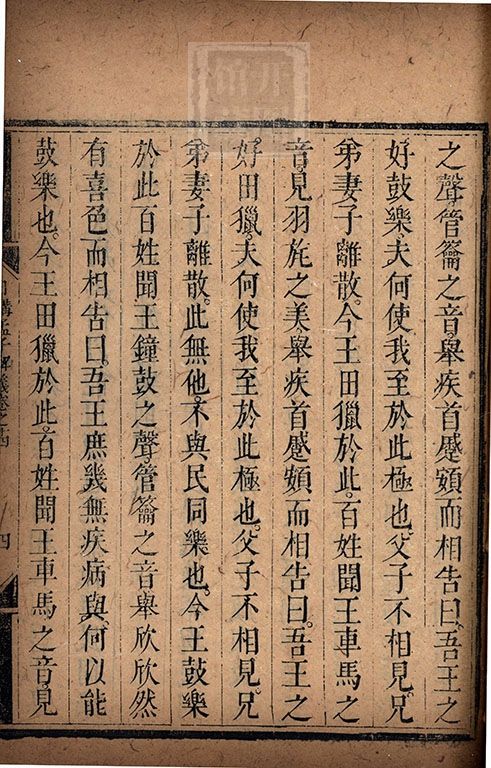 之聲管籥之音舉疾首蹙頞而相告曰吾王之
好鼓樂夫何使我至於此極也父子不相見兄
弟妻子離散今王田獵於此百姓聞王車馬之
音見羽旄之美舉疾首蹙頞而相告曰吾王之
好田獵夫何使我至於此極也父子不相見兄
弟妻子離散此無他不與民同樂也今王鼓樂
於此百姓聞王鐘鼓之聲管籥之音舉欣欣然
有喜色而相告曰吾王庶幾無疾病與何以能
鼓樂也今王田獵於此百姓聞王車馬之音見
日講孟子解義卷之四
四